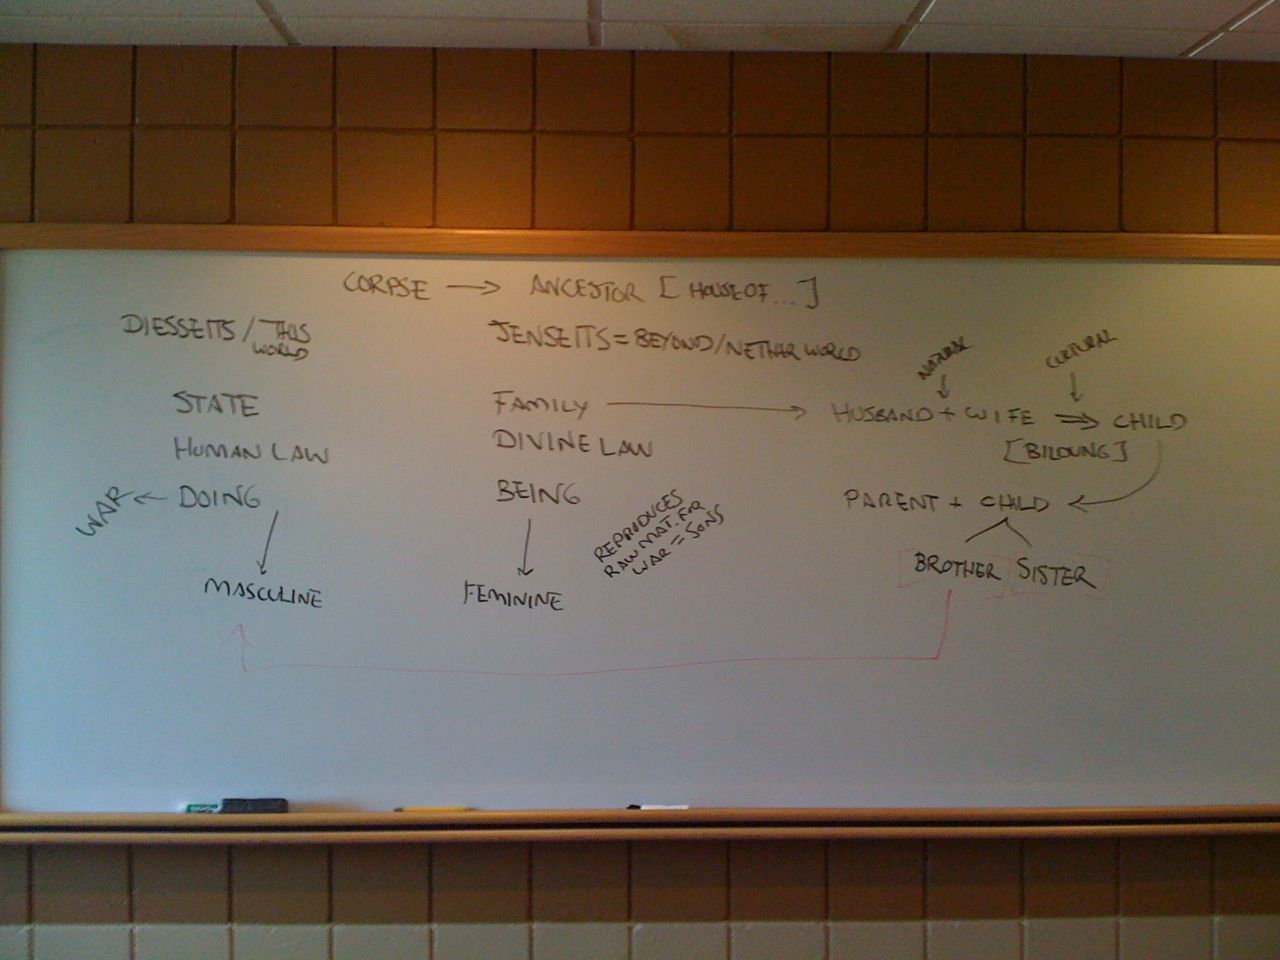 CORPSE → ANCESTOR [HOUSE OF...]
DIESSEITS / THIS WORLD
JENSEITS = BEYOND/NETHERWORLD
STATE
HUMAN LAW
WAR ← DOING
MASCULINE
FAMILY → HUSBAND + WIFE ⇒ CHILD
NATURAL
CULTURAL
[BILDUNG]
DIVINE LAW
BEING
FEMININE
REPRODUCES
RAW MAT. FOR
WAR = SONS
PARENT + CHILD
BROTHER SISTER